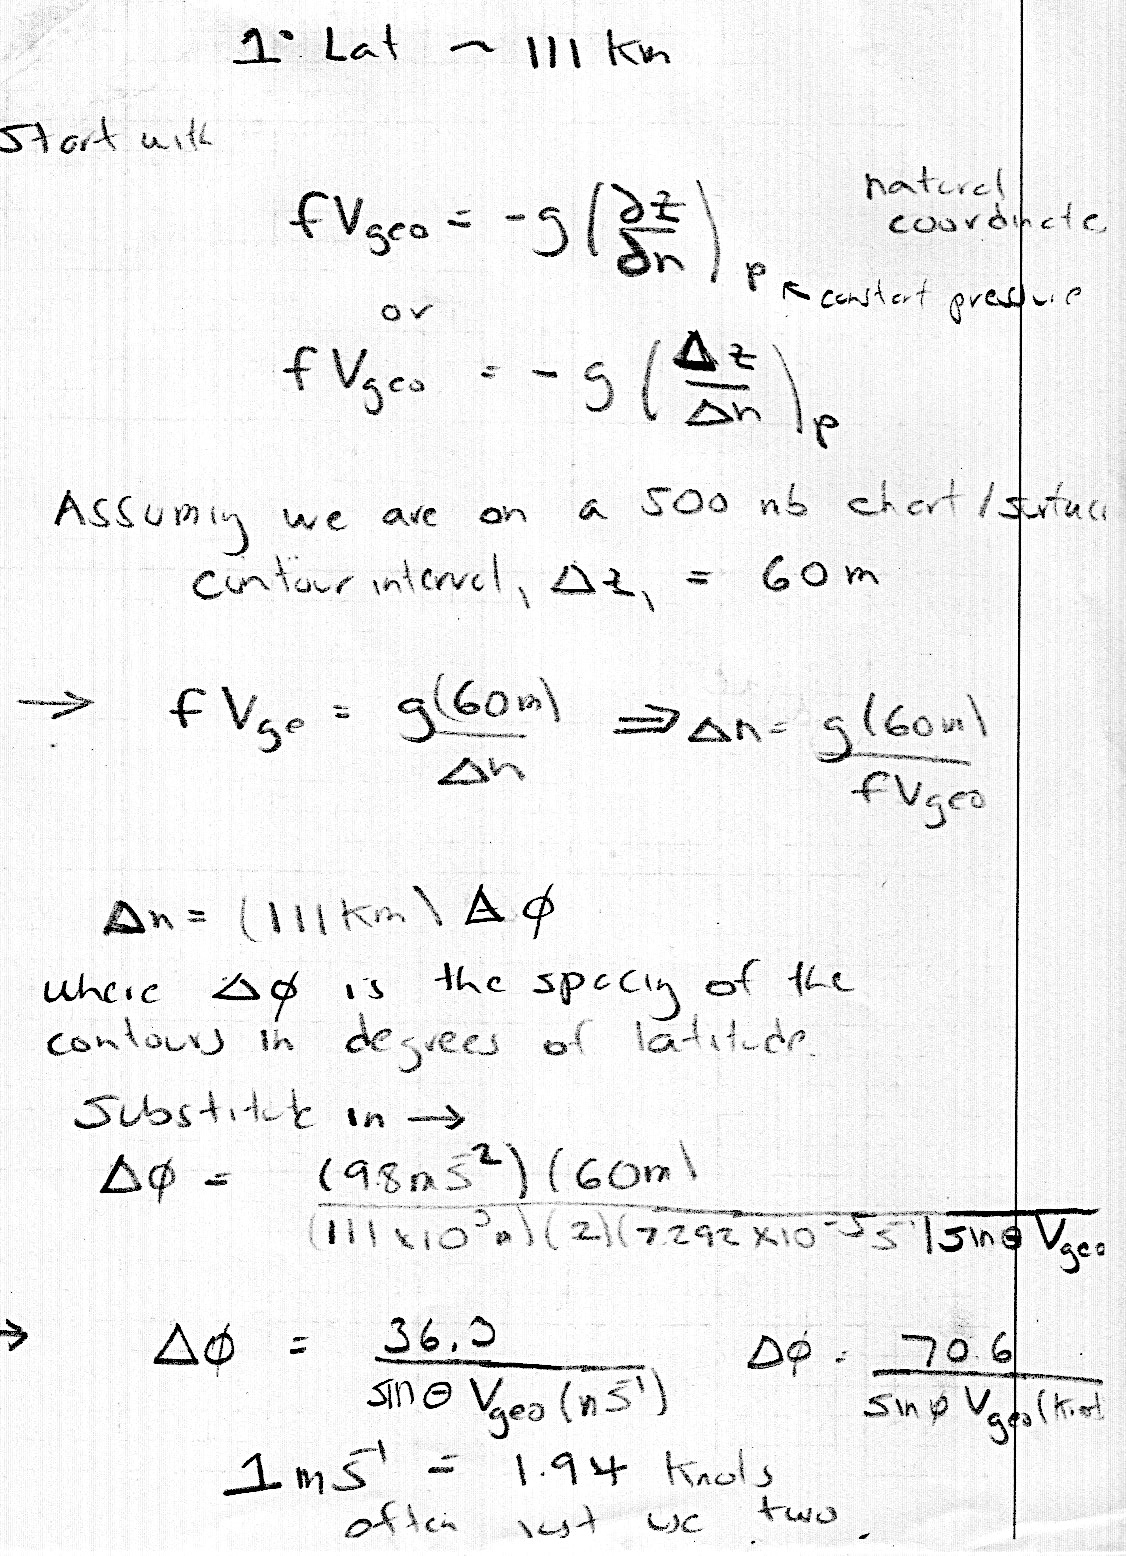 1° Lat ~ 111 km
Start with
fVgeo = -g (∂z/∂n)p
natural
coordinate
↖ constant pressure
or
fVgeo = -g (Δz/Δn)p
Assuming we are on a 500 mb chart / surface
contour interval, Δz, = 60 m
→ fVge = g(60m)/Δn ⇒ Δn = g(60m)/fVgeo
Δn = (111 km) Δφ
where Δφ is the spacing of the
contours in degrees of latitude.
Substitute in →
Δφ = (9.8 m s⁻²)(60m) / (111 x 10³ m)(2)(7.292 x 10⁻⁵ s⁻¹) sin θ Vgeo
→ Δφ = 36.3 / sin θ Vgeo (m s⁻¹) Δφ = 70.6 / sin φ Vgeo (knot
1 m s⁻¹ = 1.94 knots
often just use two.